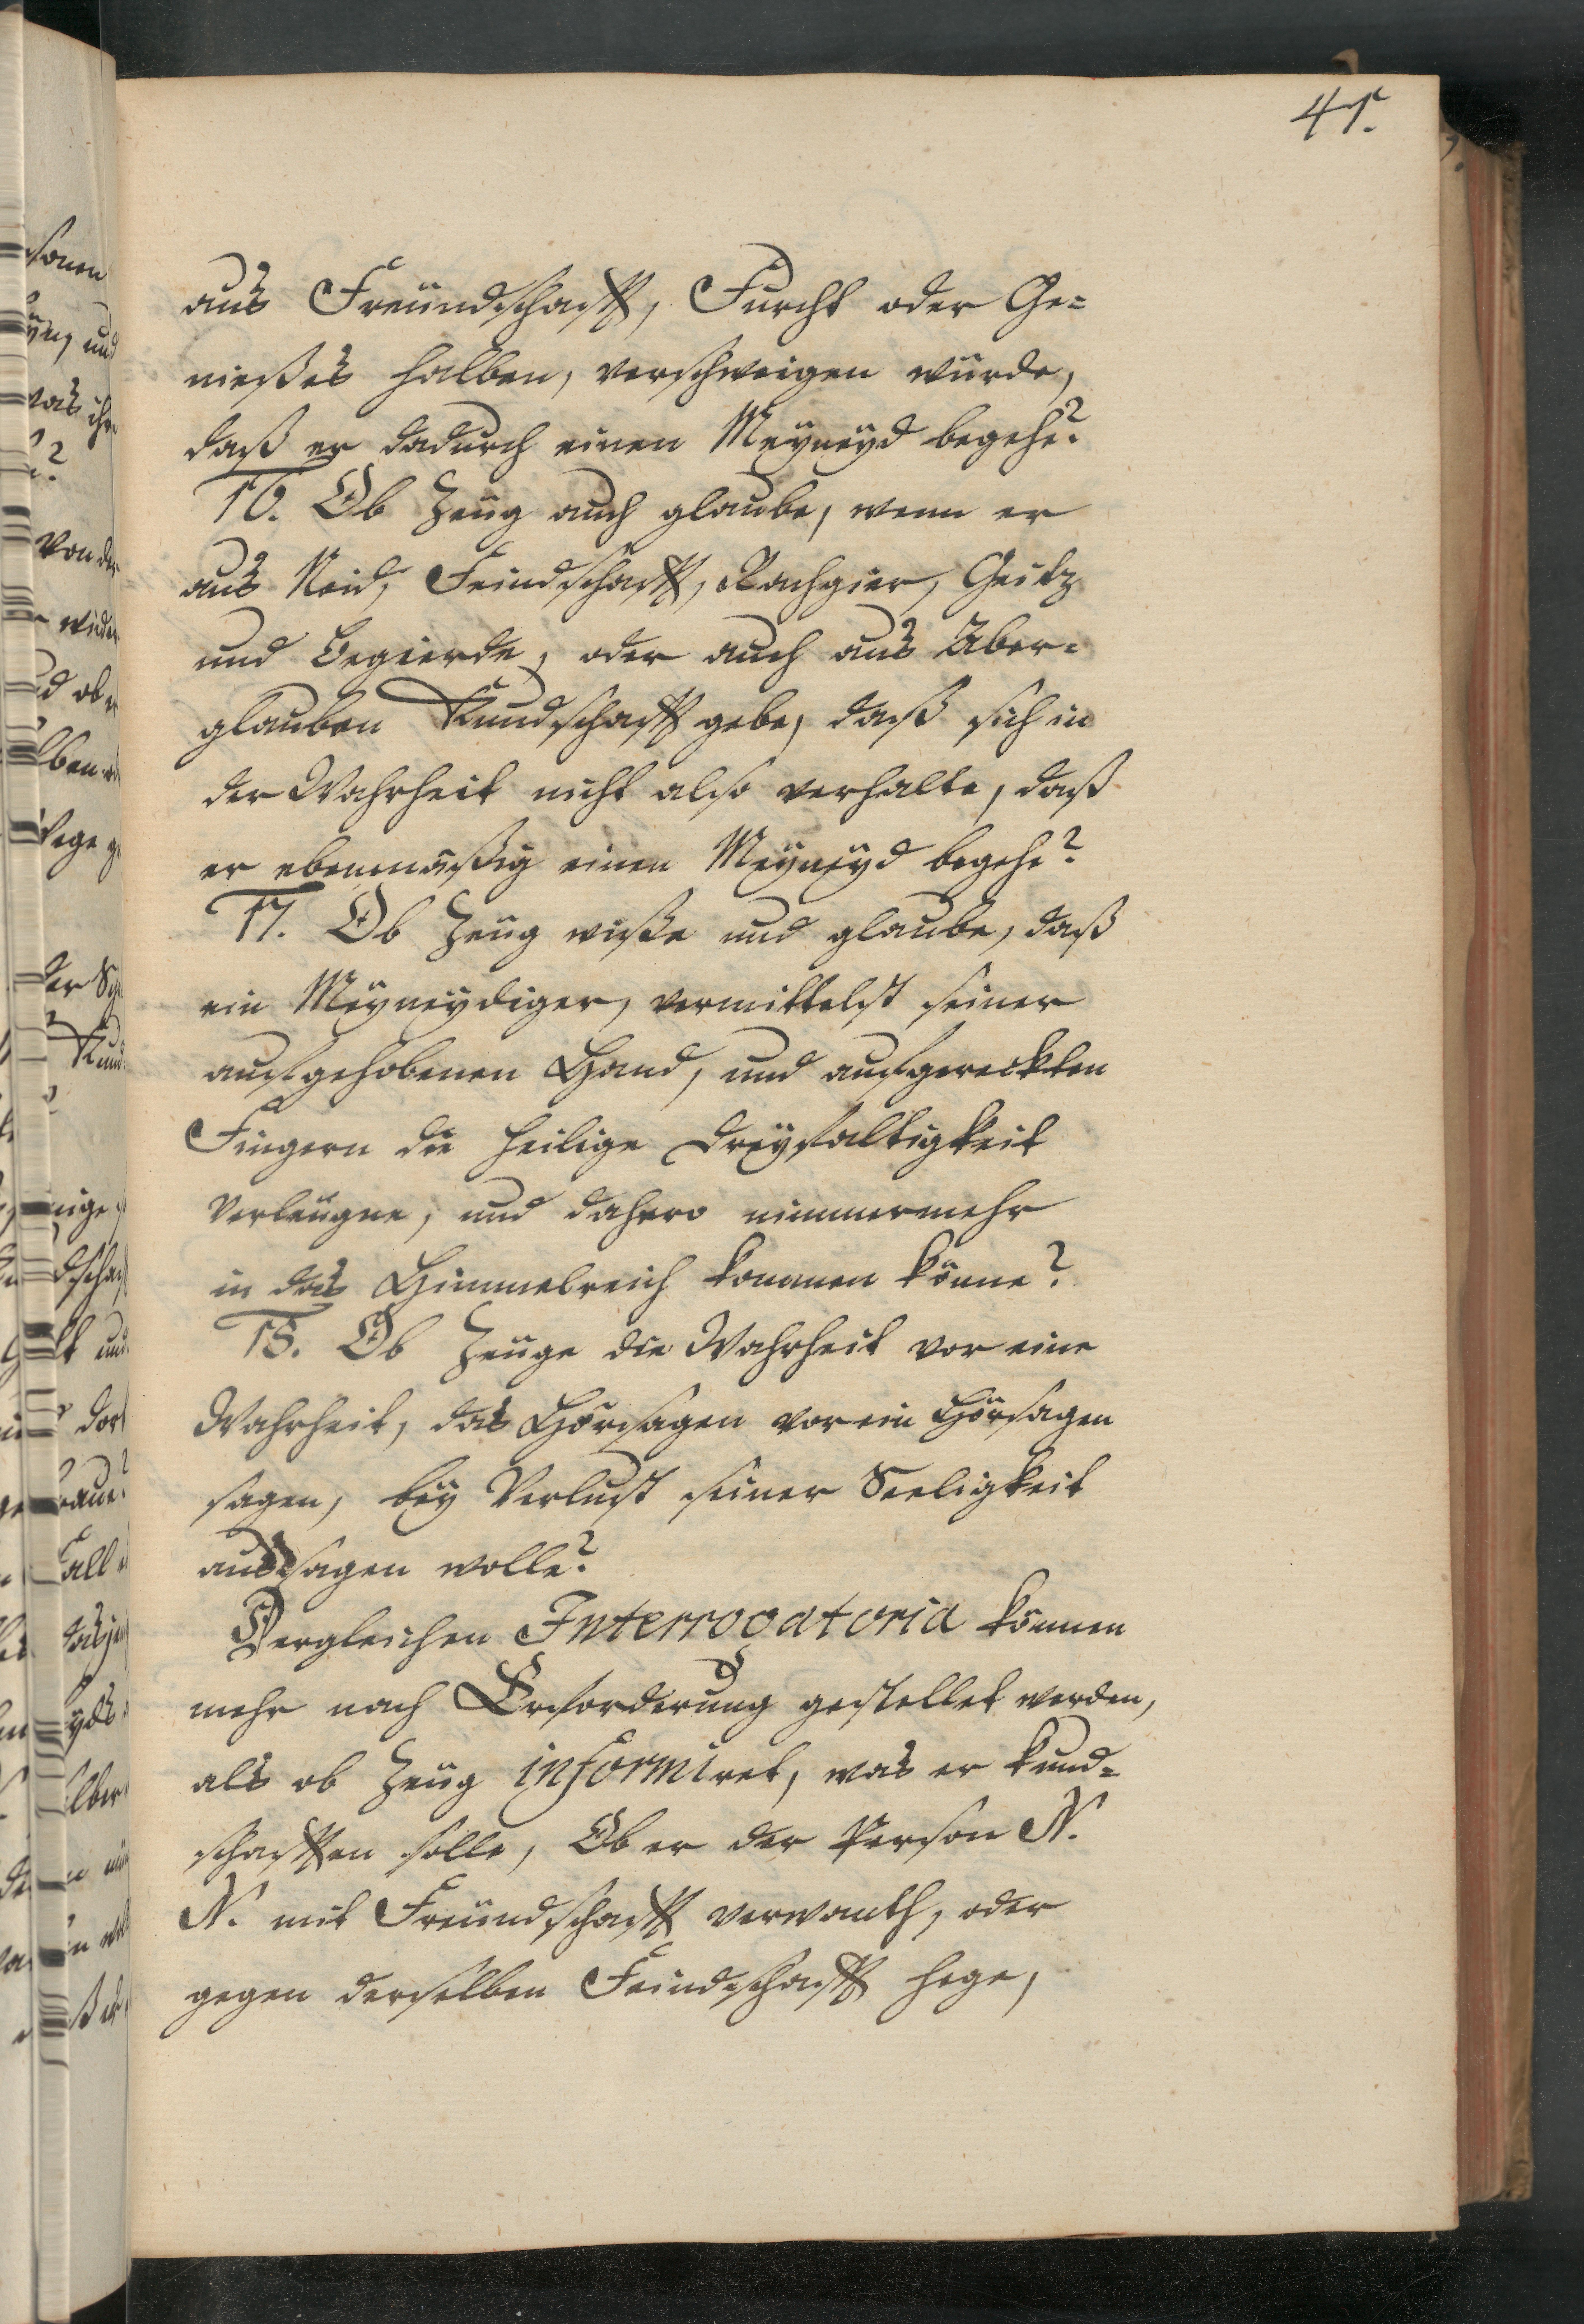 41.
aus Freundschafft, Furcht oder Ge=
nießes halben, verschweigen würde,
daß er dadurch einen Meyneyd begehe?
16. Ob Zeug auch glaube, wenn er
aus Neid, Feindschafft, Rachgier, Geitz
und Begierde, oder auch aus Aber=
glauben Kundschafft gebe, daß sich in
der Wahrheit nicht also verhalte, daß
er ebenmäßig einen Meyneyd begehe?
17. Ob Zeug wiße und glaube, daß
ein Meyneydiger, vermittelst seiner
aufgehobenen Hand, und aufgereckten
Fingern die heilige Dreyfaltigkeit
Verleugne, und dahero nimmermehr
in das Himmelreich kommen könne?
18. Ob Zeuge die Wahrheit vor eine
Wahrheit, das Hörsagen vor ein Hörsagen
sagen, bey Verlust seiner Seeligkeit
aussagen wolle?
Dergleichen Interrogatoria können
mehr nach Erforderung gestellet werden,
als ob Zeug informiret, was er kund=
schafften solle, Ob er der Person N.
N. mit Freundschafft verwanth, oder
gegen derselben Feindschafft hege,